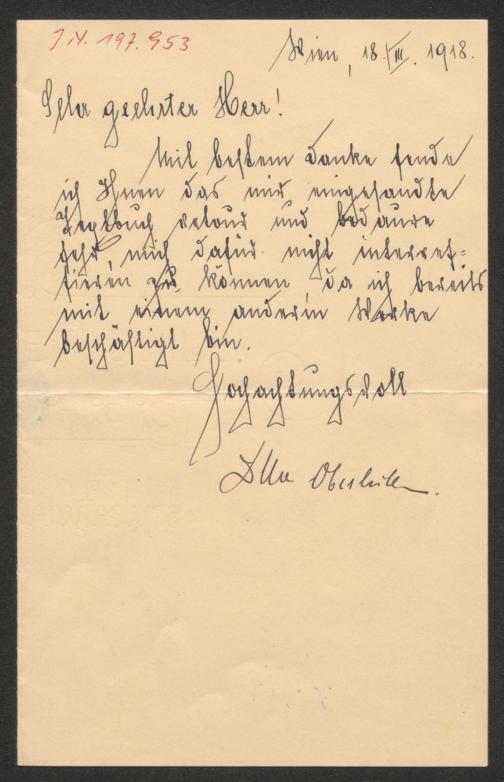 J.N. 197.953
Wien, 18./III. 1918.
Sehr geehrter Herr!
Mit bestem Danke sende
ich Ihnen das mir eingesandte
Textbuch retour und bedaure
sehr, mich dafür nicht interres=
sieren zu können da ich bereits
mit einem anderen Werke
beschäftigt bin.
Hochachtungsvoll